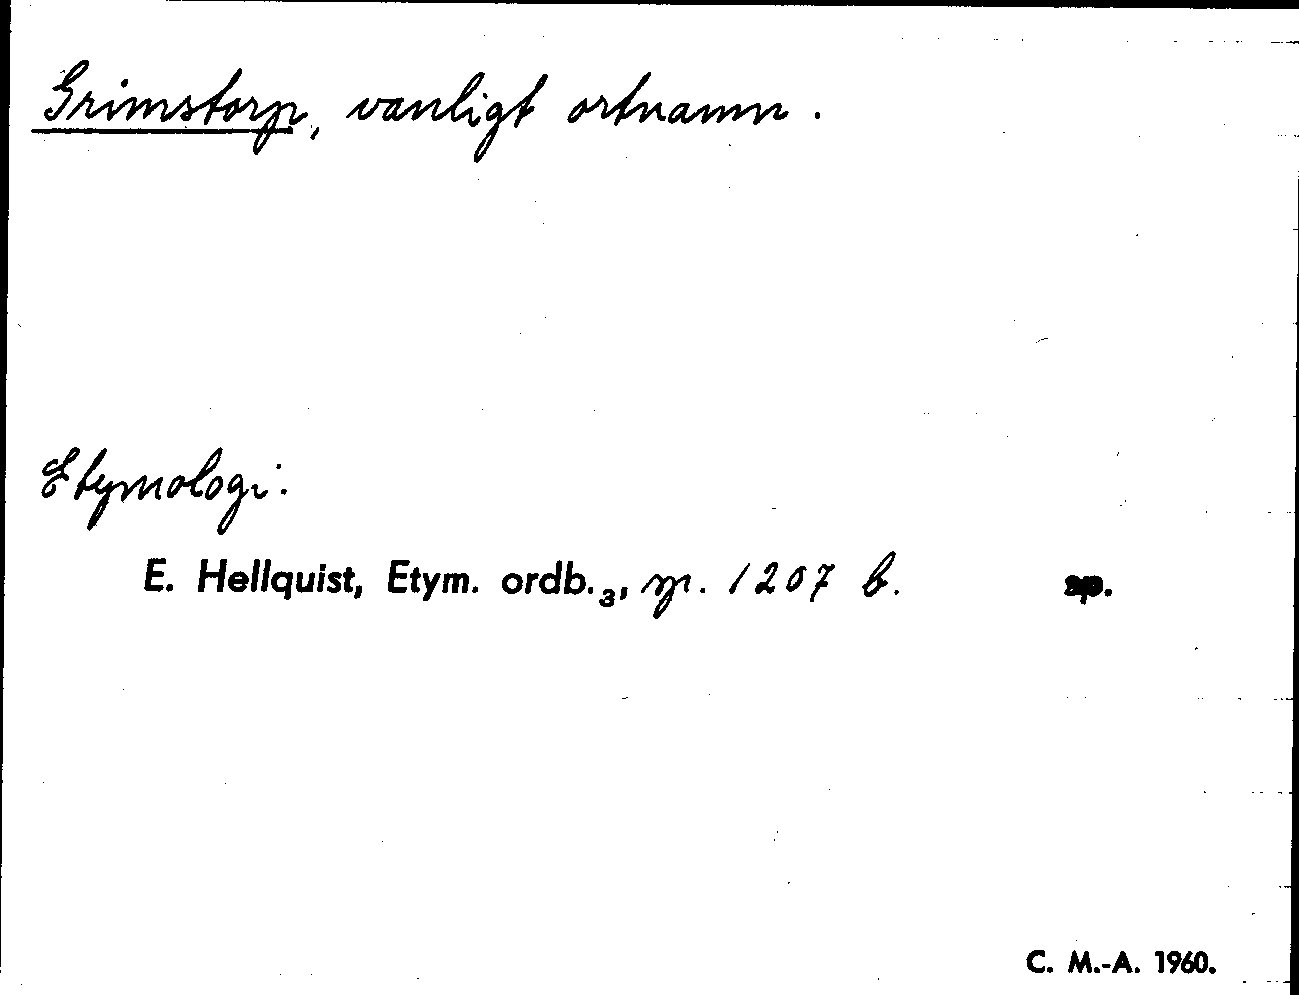 Grimstorp, vanligt ortnamn.
Etymologi:
E. Hellquist, Etym. ordb.₃, sp. 1207 b. sp.
C. M.-A. 1960.